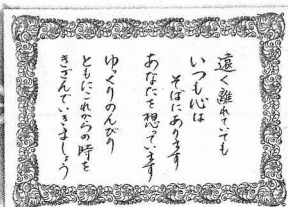 遠く離れていても
いつも心は
そばにあります
あなたを想っています
ゆっくりのんびり
ともにこれからの時を
きざんでいきましょう